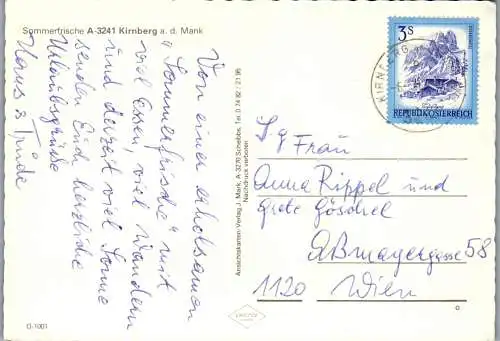 Sommerfrische A-3241 Kirnberg a. d. Mank
Von einer erholsamen
"Sommerfrische" mit
viel Essen, viel wandern
und derzeit viel Sonne
senden Euch herzliche
Urlaubsgrüße
Hans & Trude
Ansichtskarten Verlag J. Mark, A-3270 Scheibbs, Tel. 0 74 82 / 21 95
Nachdruck verboten
3 S
REPUBLIK ÖSTERREICH
KIRNBERG
Sg Frau
Anna Rippel und
Grete Göschel
Aßmayergasse 58
1120 Wien
O-1001